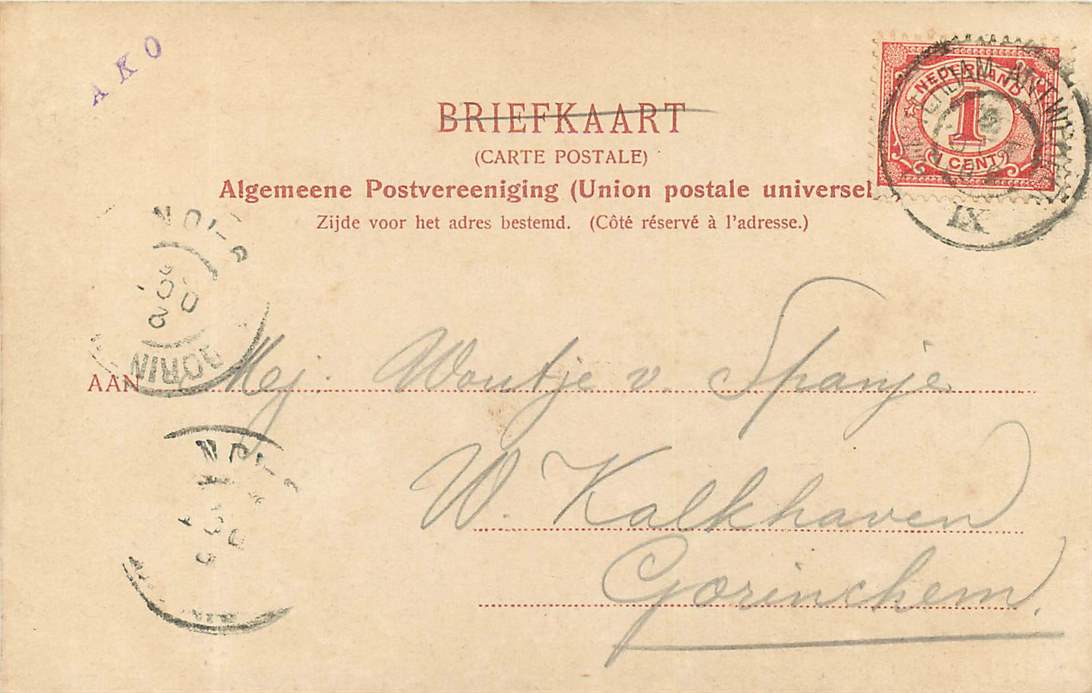 AKO
NEDERLAND
1
CENT
IX
BRIEFKAART
(CARTE POSTALE)
Algemeene Postvereeniging (Union postale universel
Zijde voor het adres bestemd. (Côté réservé à l'adresse.)
AAN Mej. Woutje v. Spanje
W. Kalkhaven
Gorinchem.